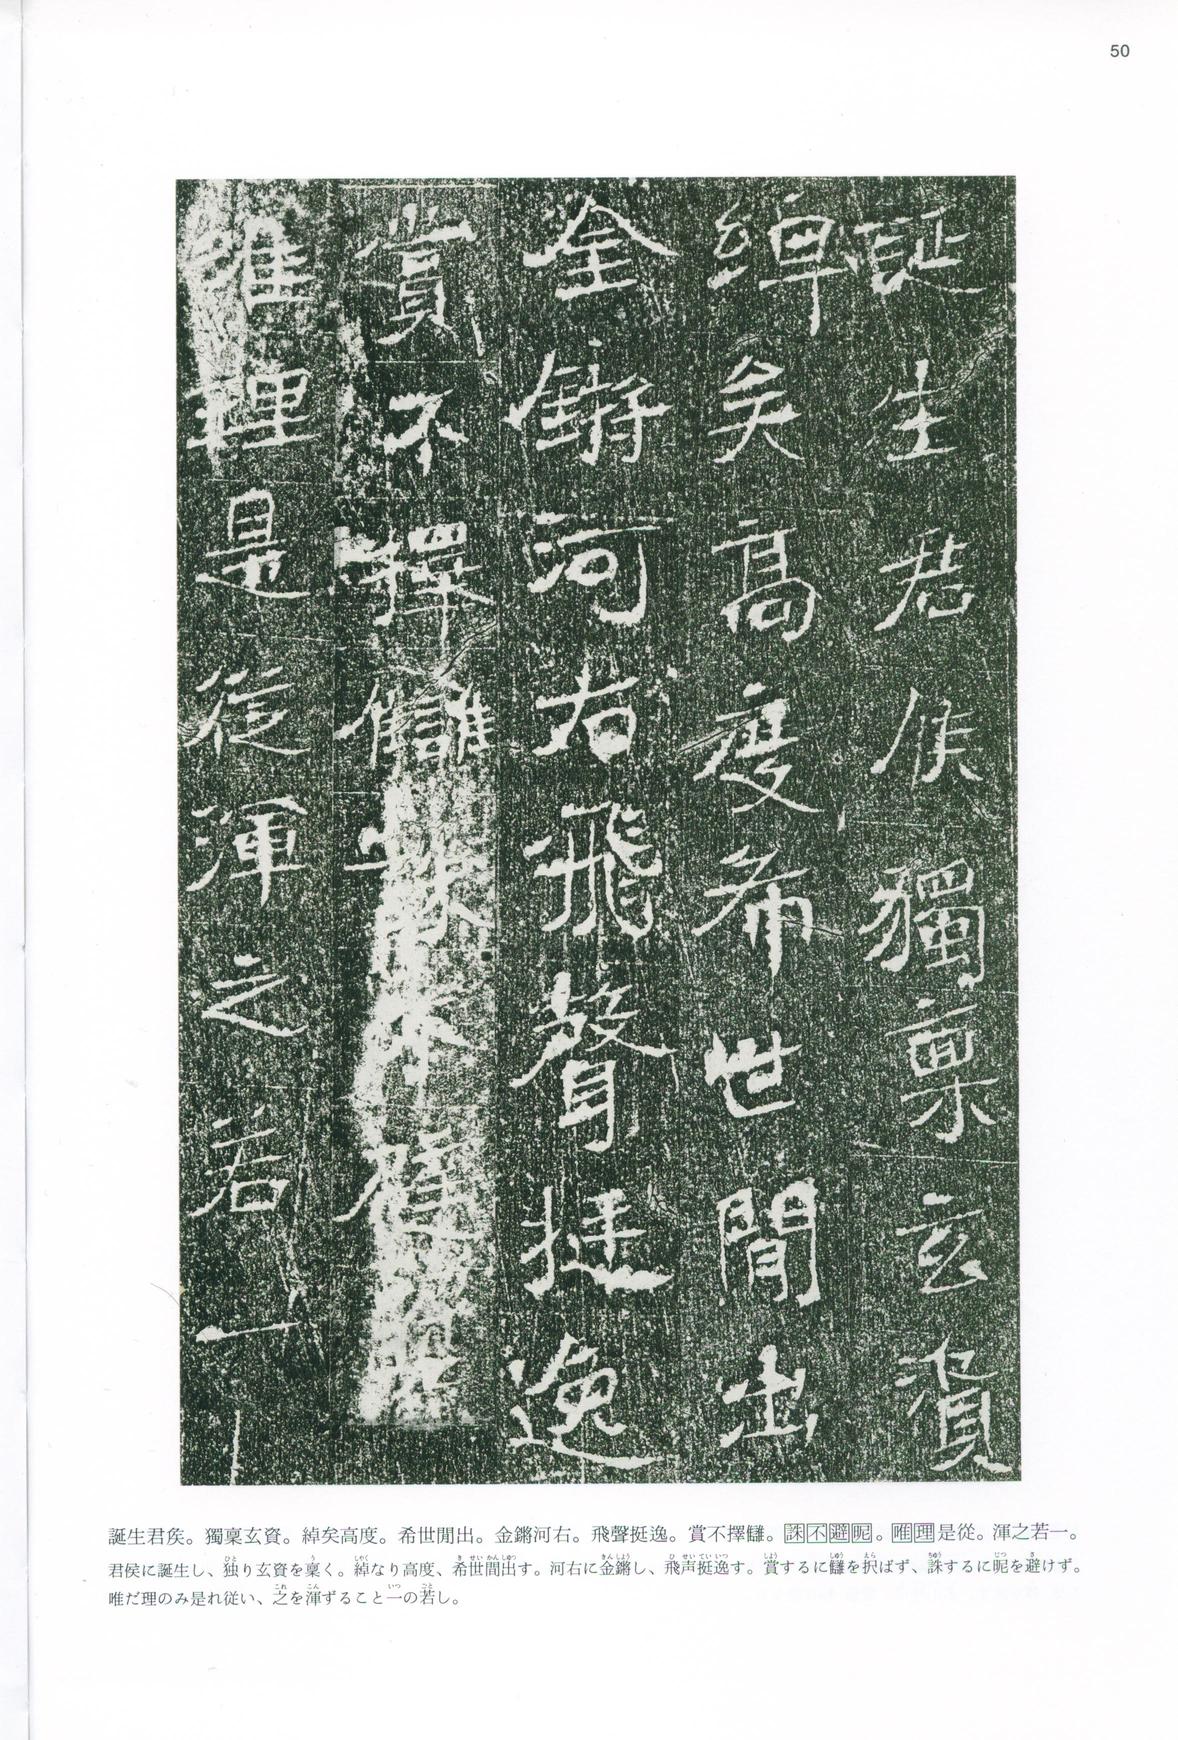 50
誕生君矦獨稟玄資
綽矣高度希世閒出
金鏘河右飛聲挺逸
賞不擇讎誅不避
唯理是從渾之若一
誕生君矦。獨稟玄資。綽矣高度。希世閒出。金鏘河右。飛聲挺逸。賞不擇讎。誅不避昵。唯理是從。渾之若一。
君侯に誕生し、独り玄資を稟く。綽なり高度、希世間出す。河右に金鏘し、飛声挺逸す。賞するに讎を択ばず、誅するに昵を避けず。
唯だ理のみ是れ従い、之を渾ずること一の若し。